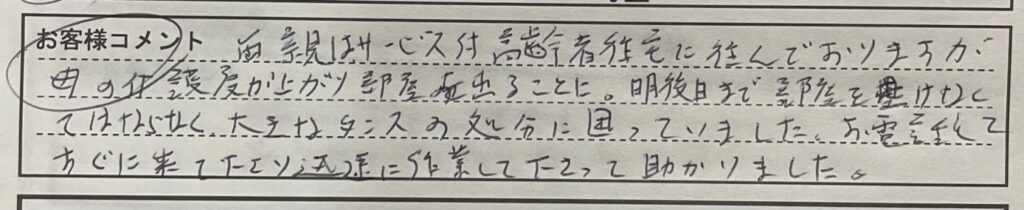 お客様コメント 両親はサービス付高齢者住宅に住んでおりますが
母の介護度が上がり部屋を出ることに。明後日まで部屋を空けなく
てはならなく、大きなタンスの処分に困っていました。お電話して
すぐに来て下さり迅速に作業して下さって助かりました。